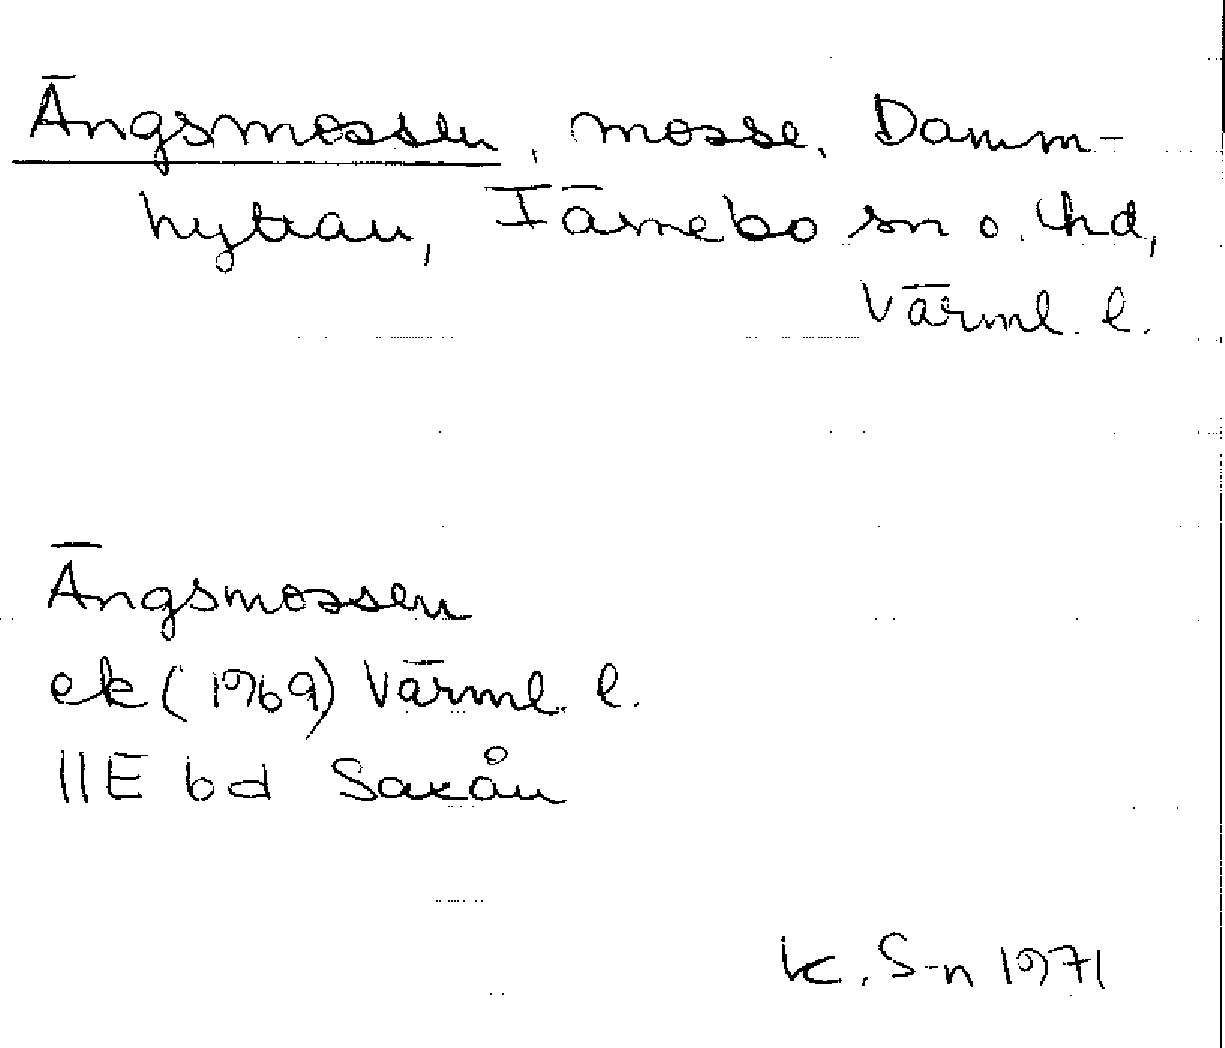 Ängsmossen, mosse, Damm-
hyttan, Färnebo sn o. hd,
Värml. l.
Ängsmossen
ek (1969) Värml. l.
11E bd Saxån
K. S-n 1971